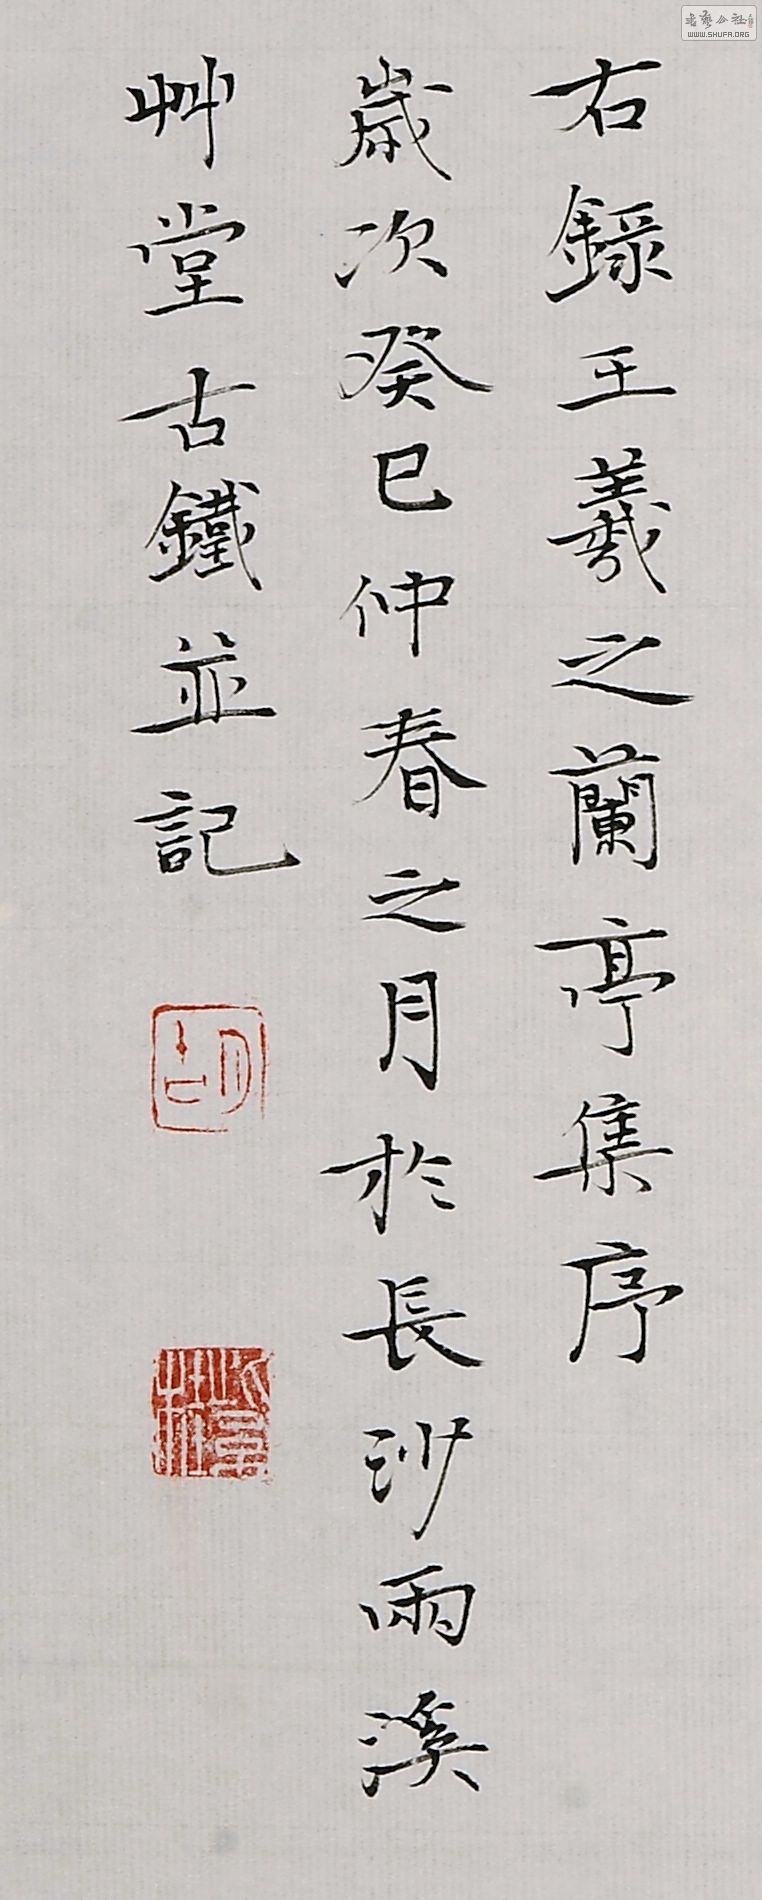 右錄王羲之蘭亭集序
歲次癸巳仲春之月於長沙雨溪
艸堂古鐵並記
胡
書藝公社
WWW.SHUFA.ORG